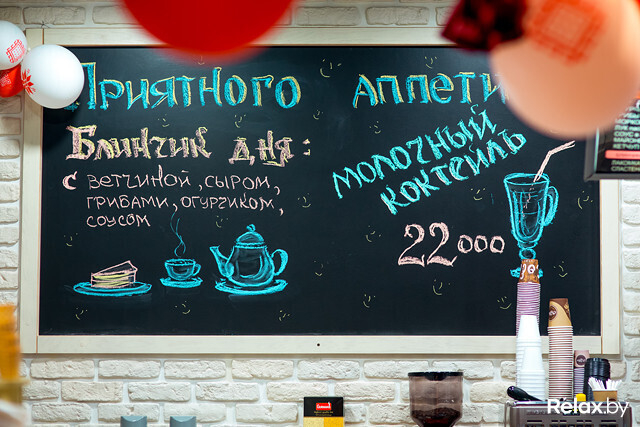 Приятного аппети
Блинчик дня:
с ветчиной, сыром,
грибами, огурчиком,
соусом
молочный
коктейль
22000
Relax.by